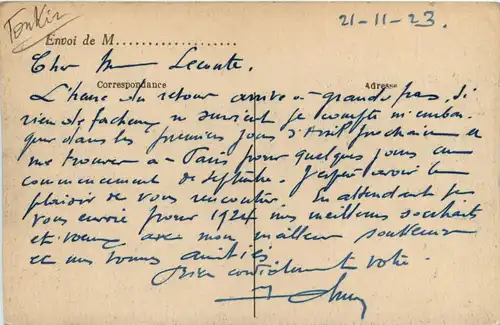 Tonkin
21-11-23.
Envoi de M....................
Cher M Lecoute.
Correspondance Adresse
L'heure du retour arrive à grands pas. Si
rien de facheux ne survient je compte m'embar-
quer dans les premiers jours d'Avril prochain et
me trouver à Paris pour quelques jours au
commencement de septembre. J'espère avoir le
plaisir de vous rencontrer. En attendant je
vous envoie pour 1924 mes meilleurs souhaits
et voeux avec mon meilleur souvenir
et mes bonnes amitiés
Bien cordialement votre